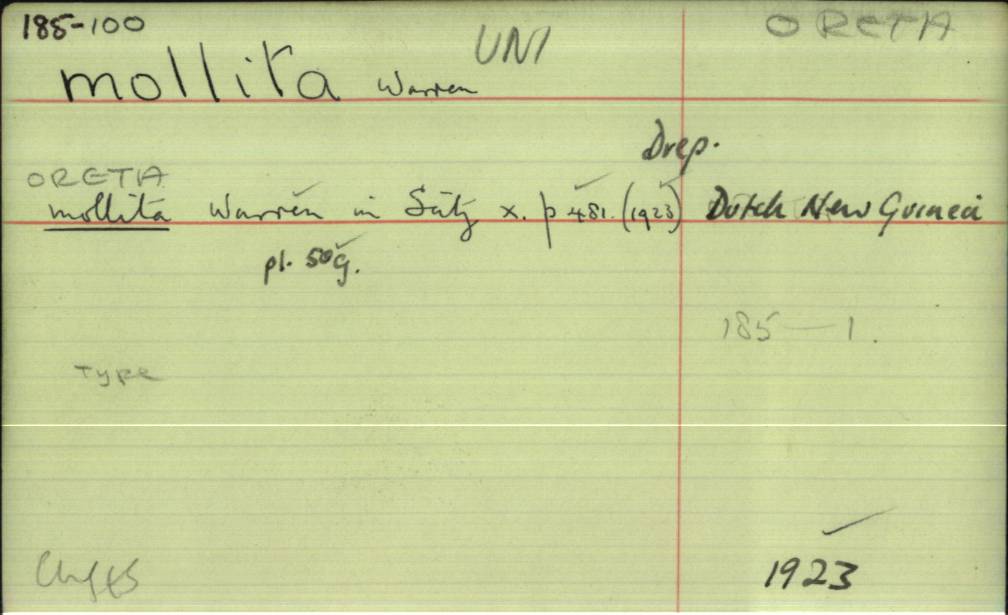 185-100
UNI
ORETA
mollita Warren
Drep.
ORETA
mollita Warren in Seitz x. p 481. (1923) Dutch New Guinea
pl. 50g.
185 — 1.
TYPE
1923